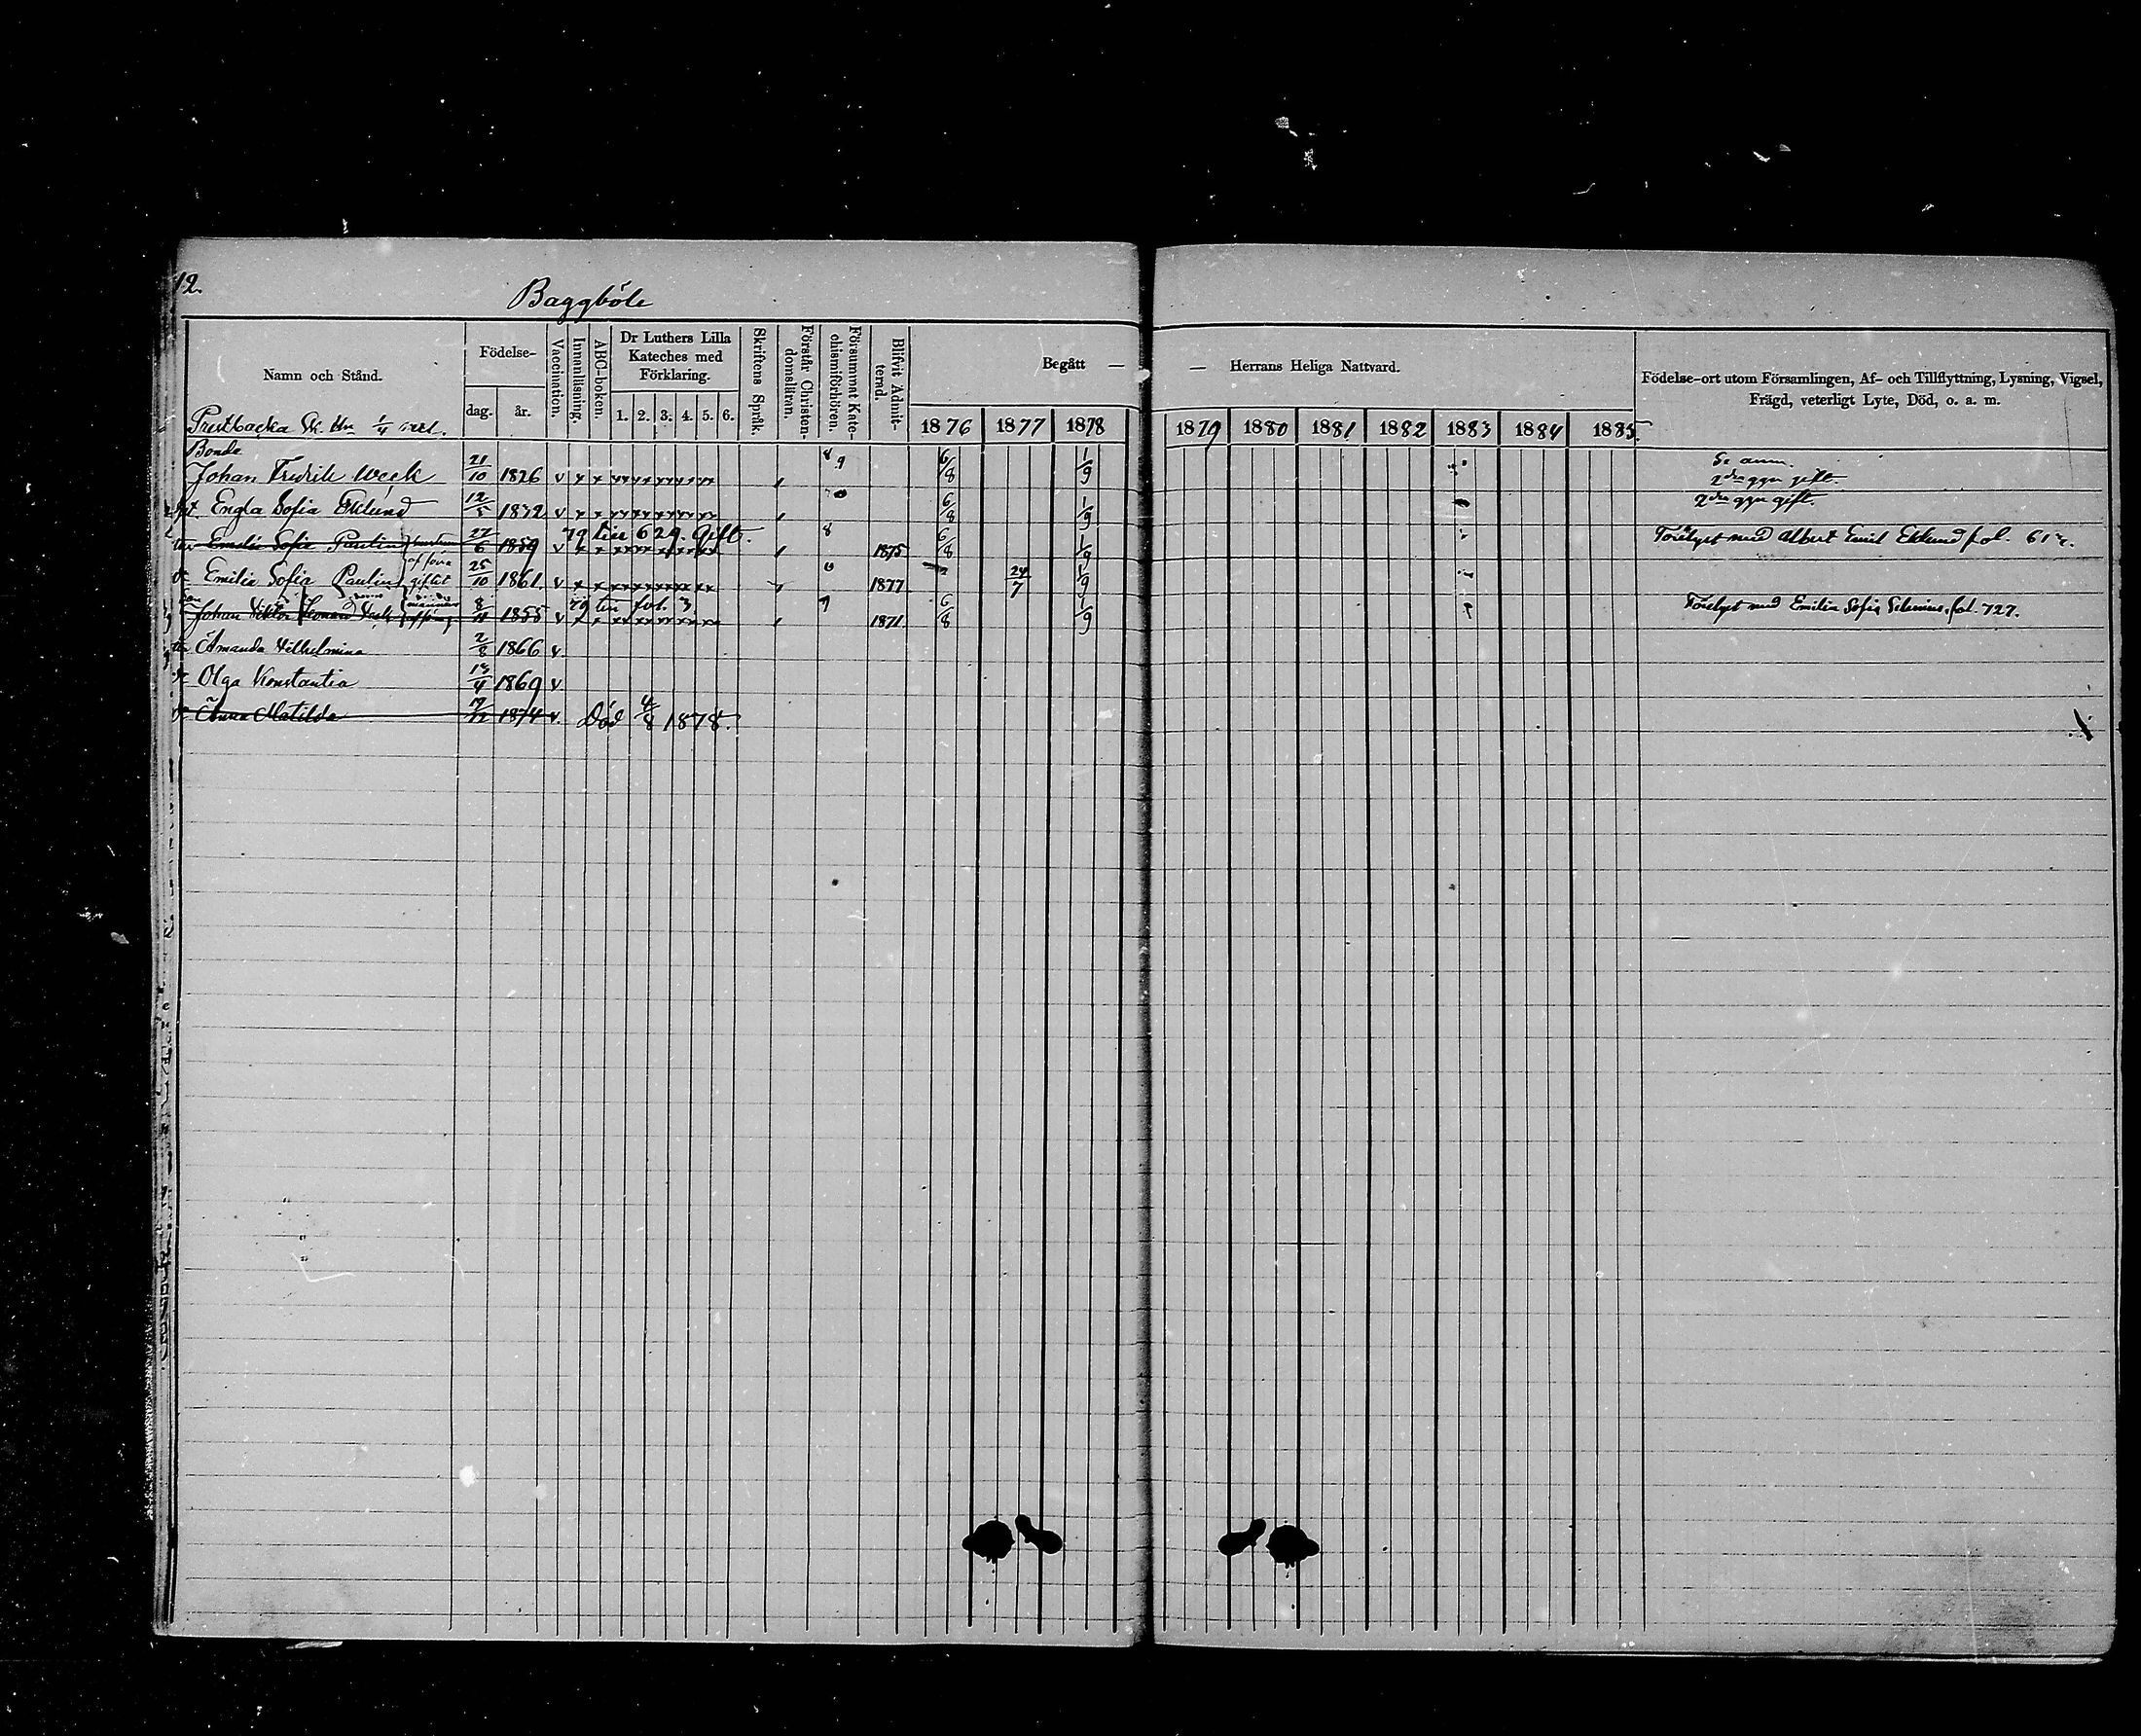 12.
Baggböle
Namn och Stånd.
Födelse-
dag.
år.
Vaccination.
Innanläsning.
ABC-boken.
Dr Luthers Lilla
Kateches med
Förklaring.
1. 2. 3. 4. 5. 6.
Skriftens Språk.
Förstår Christen-
domsläran.
Försummat Kate-
chismiförhören.
Blifvit Admit-
terad.
Begått —
— Herrans Heliga Nattvard.
1876 1877 1878 1879 1880 1881 1882 1883 1884 1885.
Födelse-ort utom Församlingen, Af- och Tillflyttning, Lysning, Vigsel,
Frägd, veterligt Lyte, Död, o. a. m.
Prestbacka
Bonde
Johan Fredrik Weck 21/10 1826 v x x 8 9 6/8 1/9
2dra ggn gift.
Engla Sofia Eklund 12/5 1832 v x x 6/8 1/9 2dra ggn gift.
Emelie Sofia Paulin 27/6 1859 v 79 till 629. Gift. 8 1875 6/8 1/9 med Albert Emil Eklund fol.
Emilie Sofia Paulin giftet 25/10 1861. v x x 1877 24/7 1/9
Johan Viktor Leonard 8/11 1855 v x 79 fol. 3. 9 1871 6/8 1/9 med Emilia Sofia fol. 727.
Amanda Vilhelmina 2/8 1866 v.
Olga Konstantia 1869 v
Anna Matilda 1874 v. Död 4/8 1878.